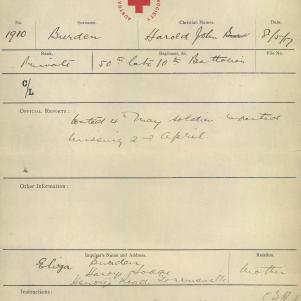 SOCIETY
No. Surname. Christian Names. Date.
1910 Burden Harold John 8/5/17
Rank. Regiment, &c. File No.
Private 50th late 10th Battalion
C/L
OFFICIAL REPORTS:
dated 4th May soldier reported
missing 2nd April.
Other Information:
Inquirer's Name and Address. Relation.
Eliza Burden Mother
Henry Road
Instructions: